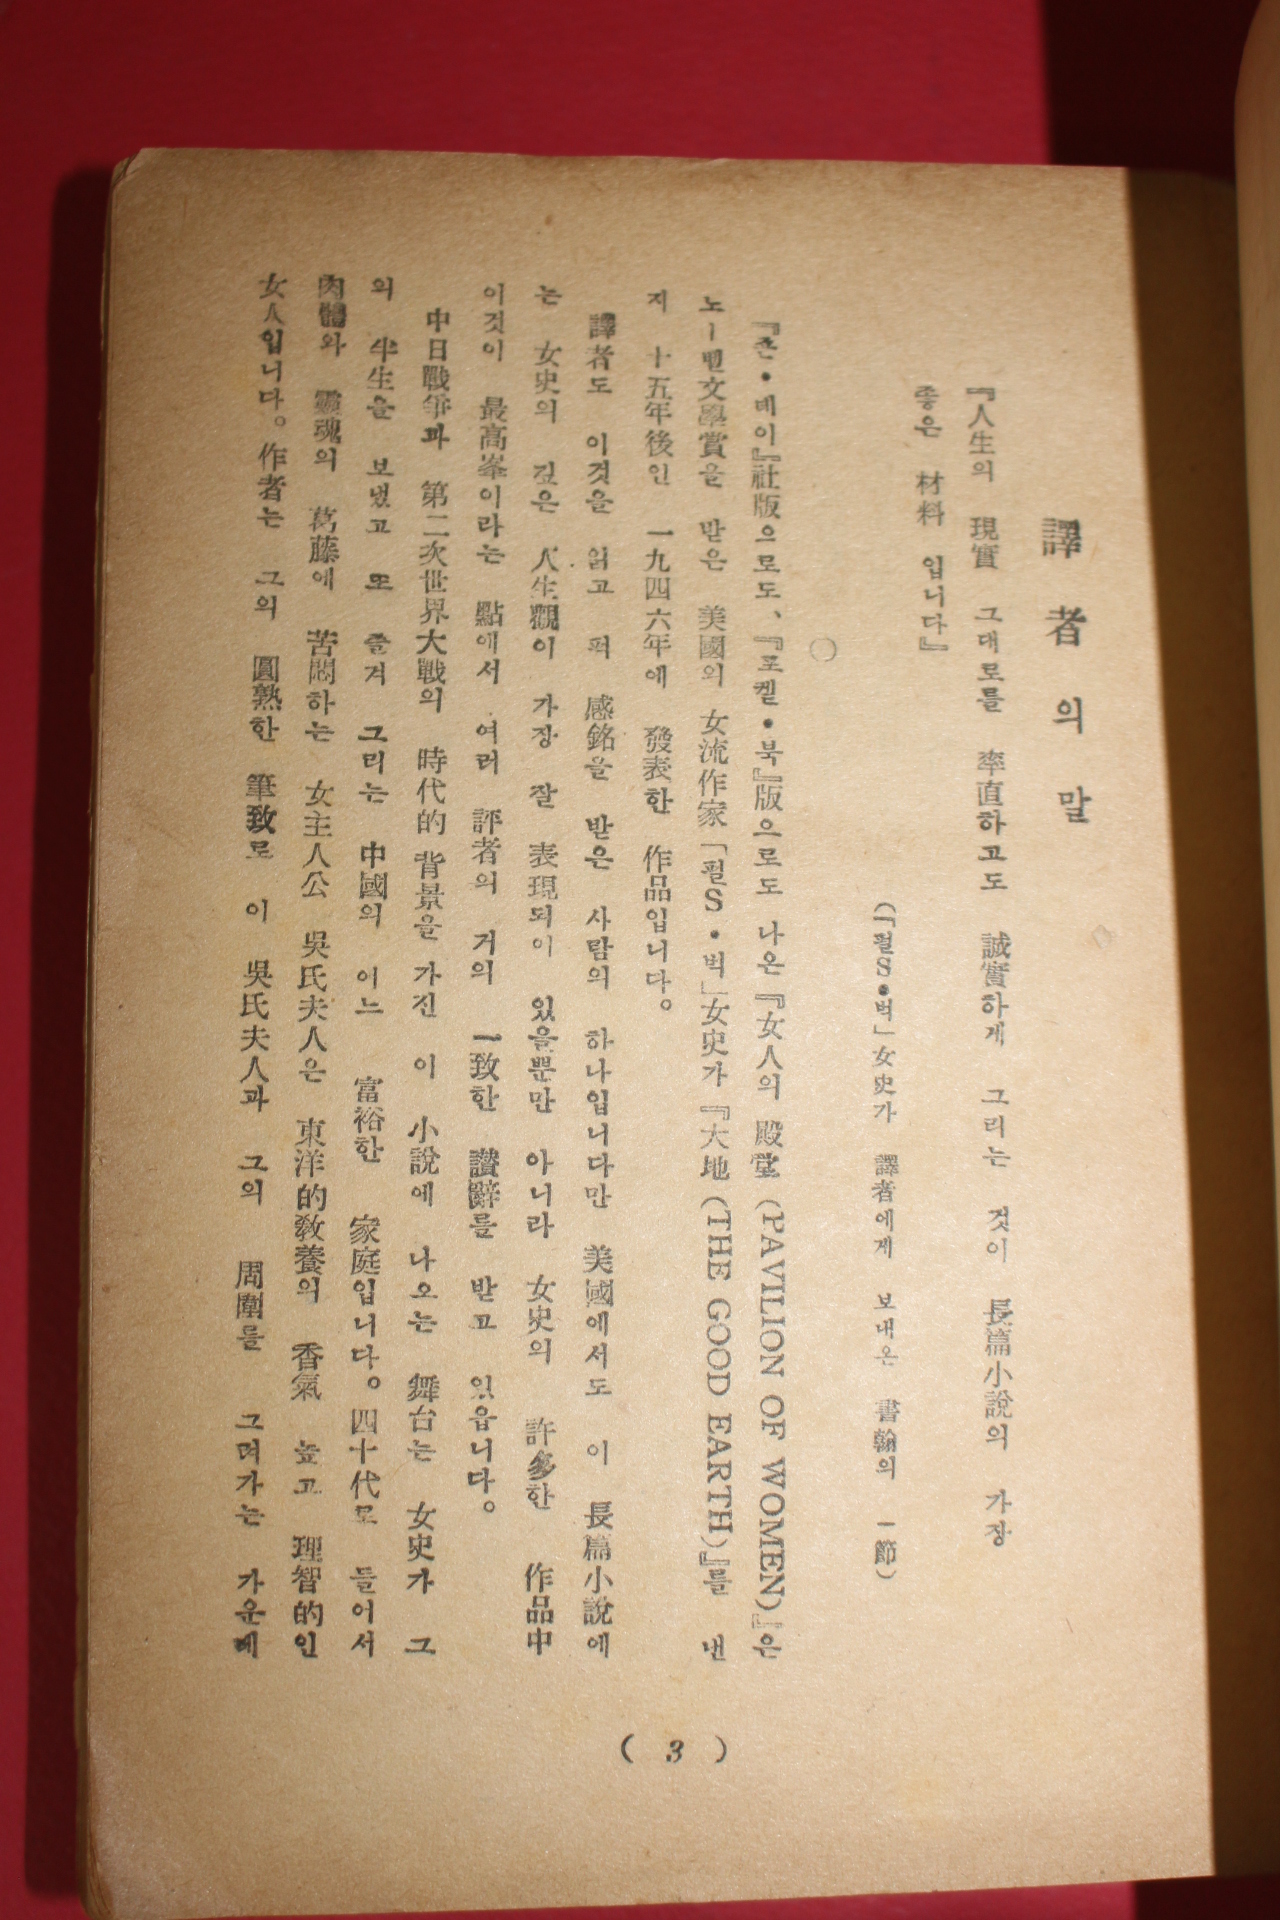 譯者의 말
『人生의 現實 그대로를 率直하고도 誠實하게 그리는 것이 長篇小說의 가장
좋은 材料 입니다』
(「펄S•벅」女史가 譯者에게 보내온 書翰의 一節)
○
『죤•데이』社版으로도、『포켙•북』版으로도 나온『女人의 殿堂 (PAVILION OF WOMEN)』은
노ー벨文學賞을 받은 美國의 女流作家「펄S•벅」女史가『大地 (THE GOOD EARTH)』를 낸
지 十五年後인 一九四六年에 發表한 作品입니다。
譯者도 이것을 읽고 퍽 感銘을 받은 사람의 하나입니다만 美國에서도 이 長篇小說에
는 女史의 깊은 人生觀이 가장 잘 表現되어 있을뿐만 아니라 女史의 許多한 作品中
이것이 最高峯이라는 點에서 여러 評者의 거의 一致한 讚辭를 받고 있읍니다。
中日戰爭과 第二次世界大戰의 時代的 背景을 가진 이 小說에 나오는 舞台는 女史가 그
의 半生을 보냈고 또 즐겨 그리는 中國의 어느 富裕한 家庭입니다。四十代로 들어서
肉體와 靈魂의 葛藤에 苦悶하는 女主人公 吳氏夫人은 東洋的敎養의 香氣 높고 理智的인
女人입니다。作者는 그의 圓熟한 筆致로 이 吳氏夫人과 그의 周圍를 그려가는 가운데
( 3 )